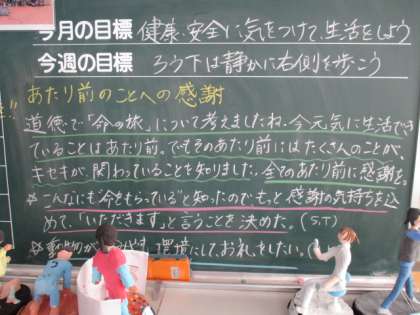 今月の目標 健康、安全に気をつけて、生活をしよう
今週の目標 ろう下は静かに右側を歩こう
あたり前のことへの感謝
道徳で「命の旅」について考えましたね。今元気に生活でき
ていることはあたり前。でもそのあたり前にはたくさんのことが、
キセキが、関わっていることを知りました。全てのあたり前に感謝を。
☆こんなにも"命をもらっている"と知ったのでもっと感謝の気持ちを込
めて、「いただきます」と言うことを決めた。(S,T)
☆動物が 環境にして、お礼をしたい。